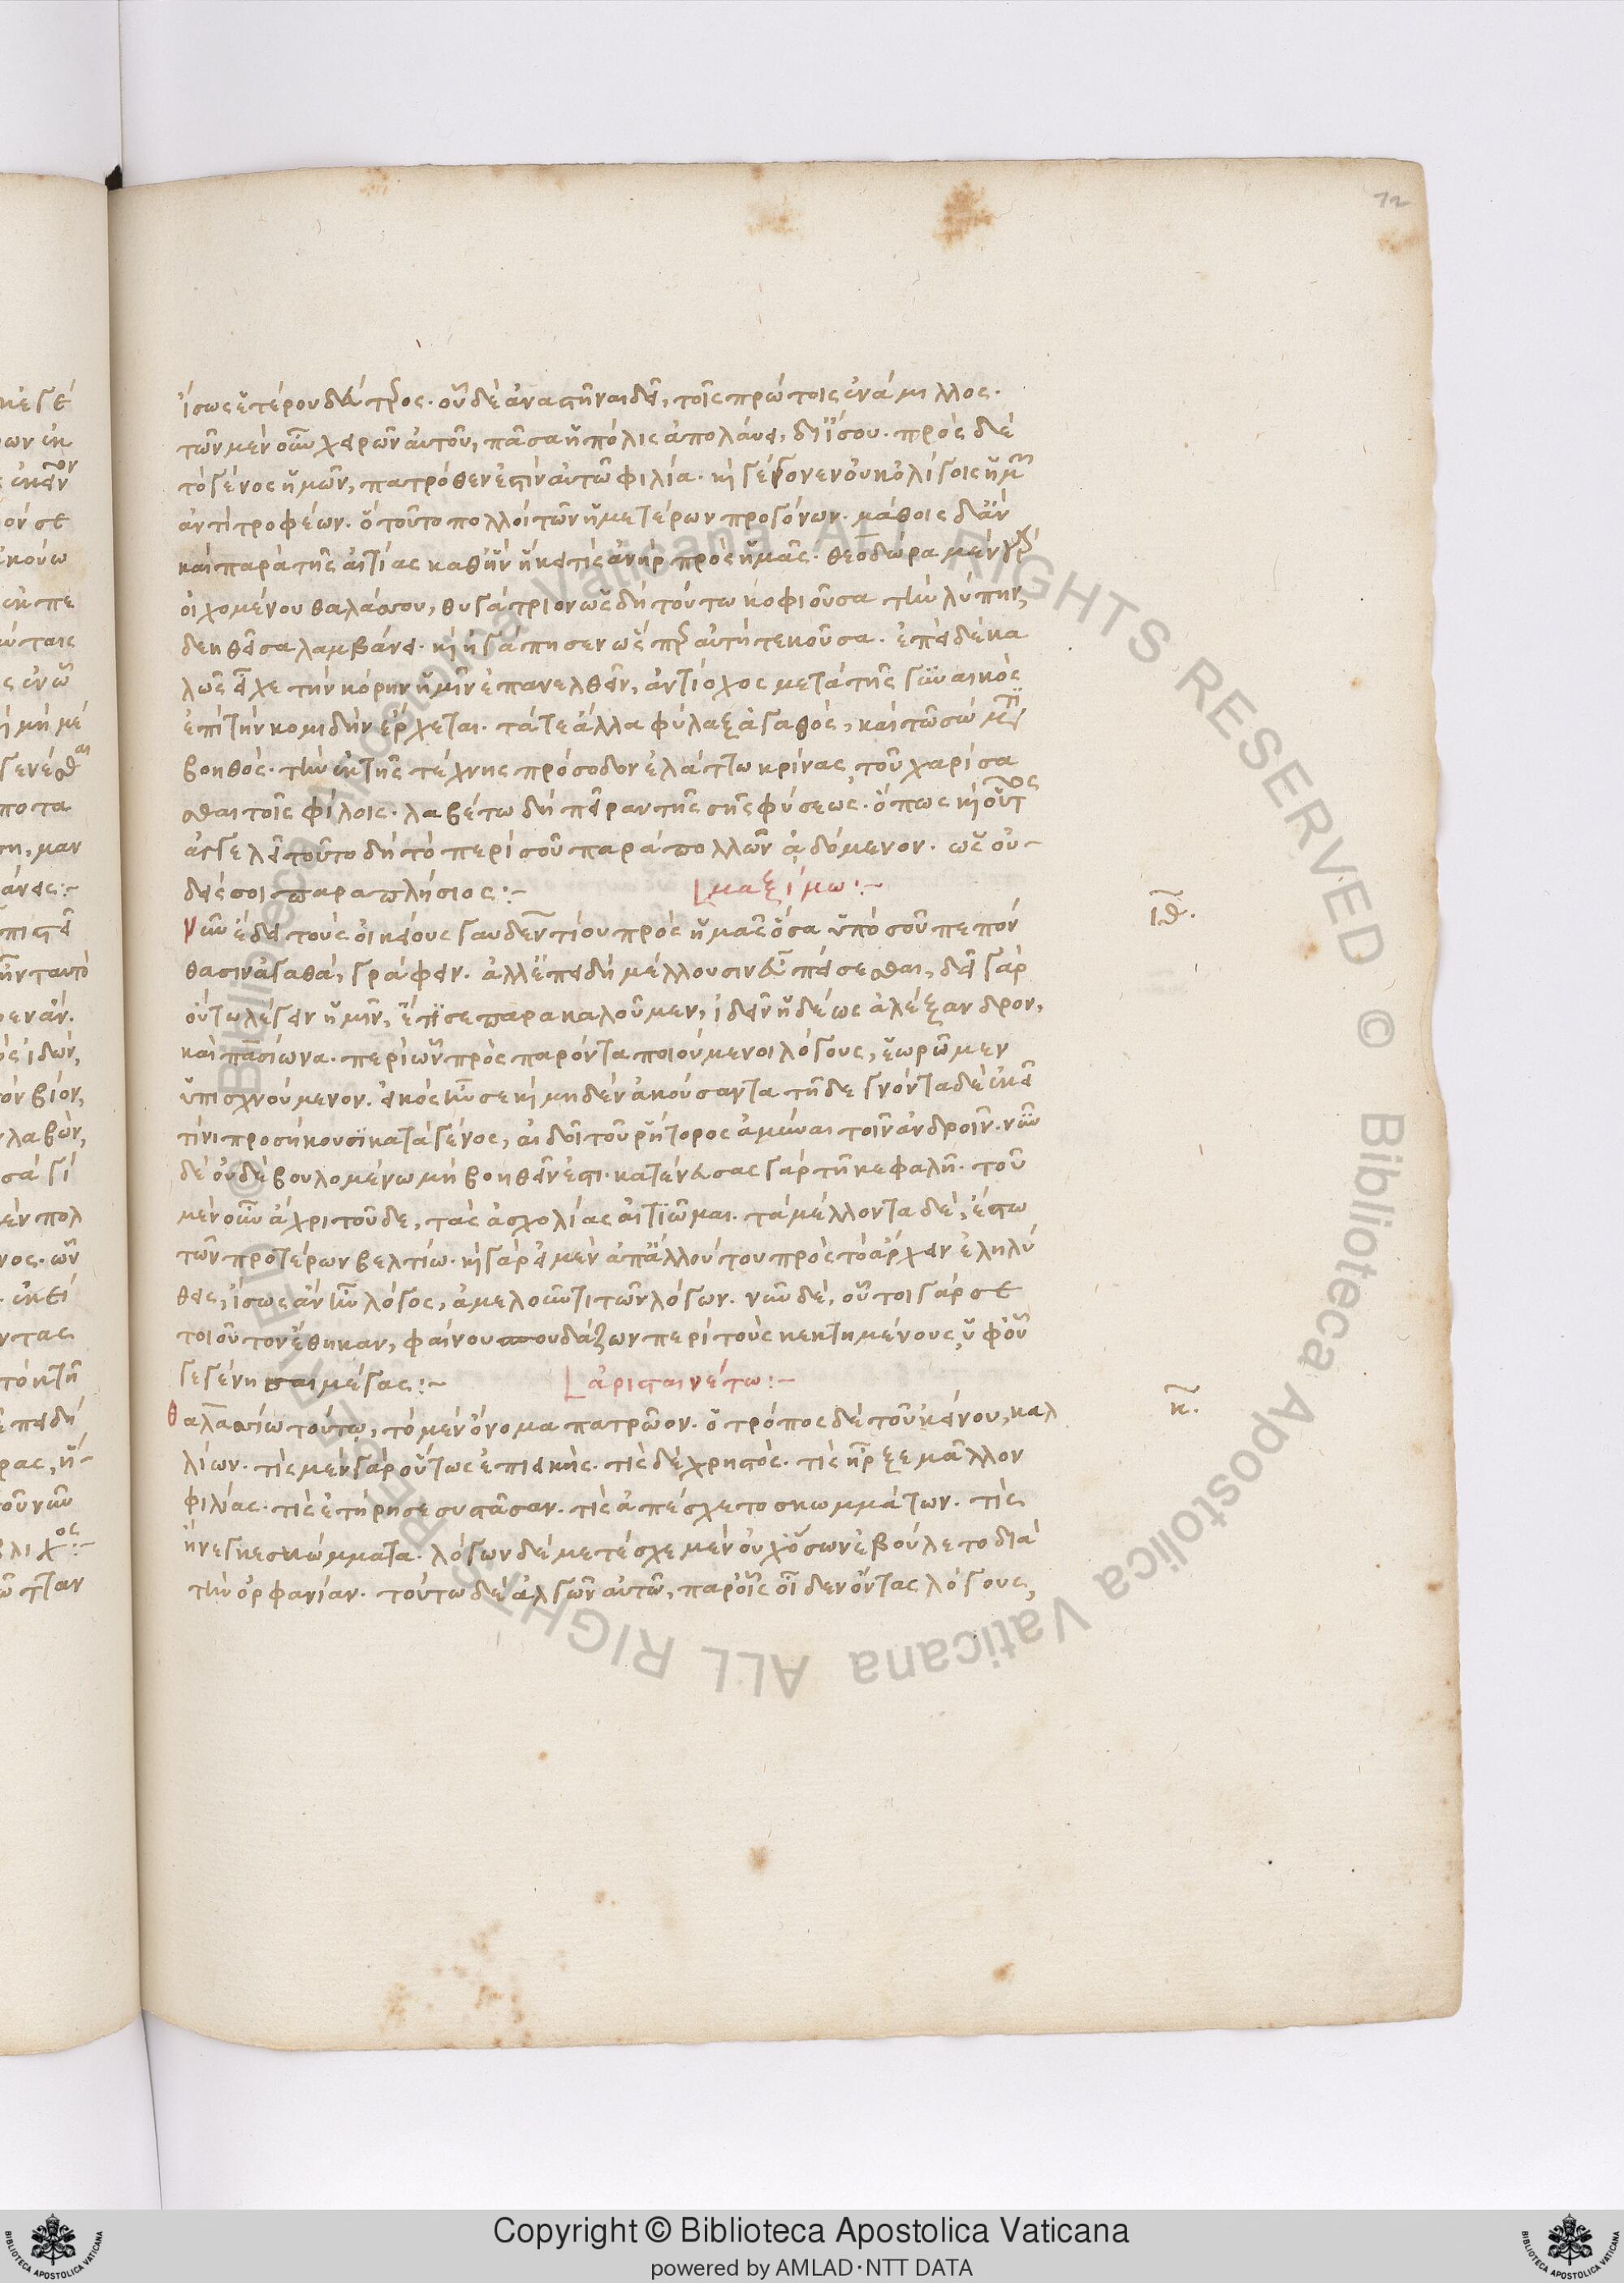 72
ἴσως ἑτέρου δεύτερος. οὗ δὲ ἀναστῆναι δεῖ, τοῖς πρώτοις ἐνάμιλλος.
τῶν μὲν οὖν χειρῶν αὐτοῦ, πᾶσα ἡ πόλις ἀπολάυει, διΐσου. πρὸς δὲ
τὸ γένος ἡμῶν, πατρόθεν ἐστὶν αὐτῶ φιλία. κὴ γέγονεν οὐκ ὀλίγοις ἡμῶν
ἀντὶ τροφέων. ὃ τοῦτο πολλοὶ τῶν ἡμετέρων προγόνων. μάθοις δἂν
καὶ παρὰ τῆς αἰτίας καθ ἣν ἥκει τις ἀνὴρ πρὸς ἡμᾶς. θεοδώρα μὲν γὰρ
οἰχομένου θαλάσσου, θυγάτριον ὡς δὴ τούτω κοφιοῦσα τὴν λύπην,
δεηθεῖσα λαμβάνει. κὴ ἠγάπησεν ὥσπερ αὐτὴ τεκοῦσα. ἐπεὶ δὲ κα
λῶς εἶχε τὴν κόρην ἡμῖν ἐπανελθεῖν, ἀντίοχος μετὰ τῆς γυναικὸς
ἐπὶ τὴν κομιδὴν ἔρχεται. τά τε ἄλλα φύλαξ ἀγαθὸς, καὶ τῶ σώματι
βοηθὸς. τὴν ἐκ τῆς τέχνης πρόσοδον ἐλάττω κρίνας, τοῦ χαρίσα
σθαι τοῖς φίλοις. λαβέτω δὴ πεῖραν τῆς σῆς φύσεως. ὅπως κὴ οὗτος
ἀγγελεῖ τοῦτο δὴ τὸ περὶ σοῦ παρὰ πολλῶν ἀδόμενον. ὡς οὐ-
δείς σοι παραπλήσιος:-
μαξίμω:-
ιθ.
νῦν ἔδει τοὺς οἰκείους γαυδεντίου πρὸς ἡμᾶς ὅσα ὑπὸ σοῦ πεπόν
θασιν ἀγαθὰ, γράφειν. ἀλλ ἐπειδὴ μέλλουσιν εὖ πείσεσθαι, δεῖ γὰρ
οὕτω λέγειν ἡμῖν, ἔτι σε παρακαλοῦμεν, ἰδεῖν ἡδέως ἀλέξανδρον,
καὶ πασίωνα. περὶ ὧν πρὸς παρόντα ποιούμενοι λόγους, ἑωρῶμεν
ὑπισχνούμενον. εἰκὸς ἦν σε κὴ μηδὲν ἀκούσαντα τῆδε γνόντα δὲ ἐκεῖ
τίνι προσήκουσι κατὰ γένος, αἰδοῖ τοῦ ῥήτορος ἀμύναι τοῖν ἀνδροῖν. νῦν
δὲ οὐδὲ βουλομένω μὴ βοηθεῖν ἔστι. κατένευσας γὰρ τῆ κεφαλῆ. τοῦ
μὲν οὖν ἄχρι τοῦδε, τὰς ἀσχολίας αἰτιῶμαι. τὰ μέλλοντα δὲ, ἔστω
τῶν προτέρων βελτίω. κὴ γὰρ εἰ μὲν ἀπ ἄλλου του πρὸς τὸ ἄρχειν ἐληλύ
θεις, ἴσως ἂν ἦν λόγος, ἀμελοῦντι τῶν λόγων. νῦν δὲ, οὗτοι γάρ σε
τοιοῦτον ἔθηκαν, φαίνου σπουδάζων περὶ τοὺς κεκτημένους, ὑφ οὗ
γεγένησαι μέγας:-
ἀρισταινέτω:-
κ.
θαλασσίω τούτω, τὸ μὲν ὄνομα πατρῶον. ὁ τρόπος δὲ τοῦ κείνου, καλ
λίων. τίς μὲν γὰρ οὕτως ἐπιεικὴς. τίς δὲ χρηστὸς. τίς ἦρξε μᾶλλον
φιλίας. τίς ἐτήρησε συστᾶσαν. τίς ἀπέσχετο σκωμμάτων. τίς
ἤνεγκε σκώμματα. λόγων δὲ μετέσχε μὲν οὐχ ὅσων ἐβούλετο διὰ
τὴν ὀρφανίαν. τούτω δὲ ἀλγῶν αὐτῶ, παρ οἷς οἶδεν ὄντας λόγους,